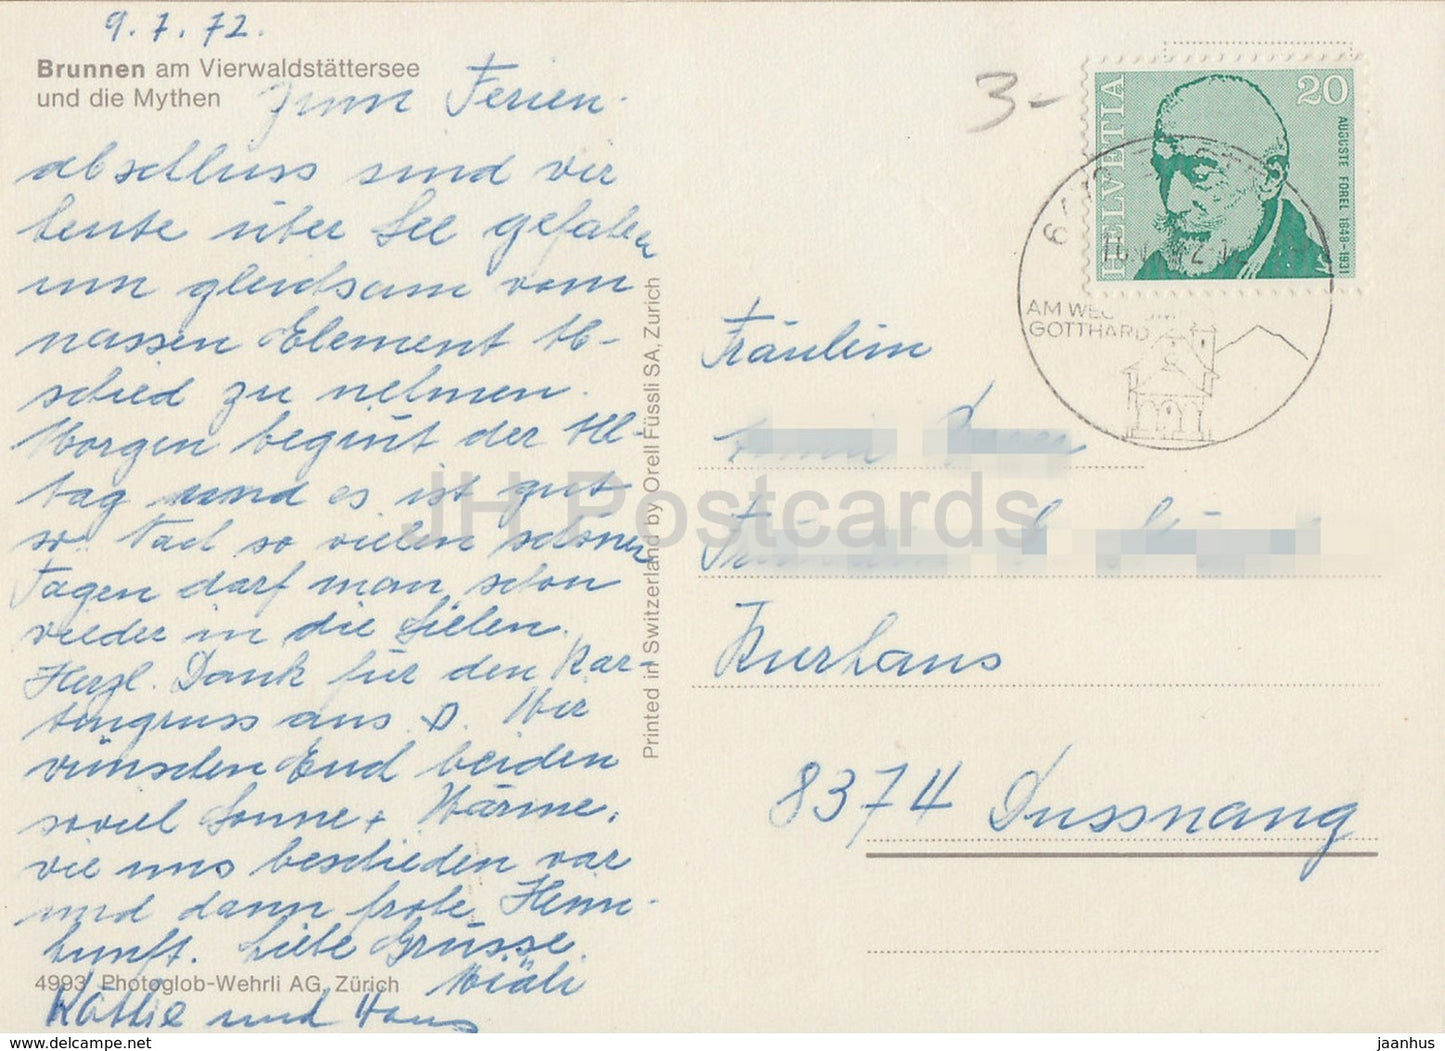 9.7.72.
Brunnen am Vierwaldstättersee
und die Mythen
Zum Ferien-
abschluss sind wir
heute über See gefahren
um gleichsam vom
nassen Element Ab-
schied zu nehmen.
Morgen beginnt der All-
tag und es ist gut
so. Nach so vielen schönen
Tagen darf man schon
wieder in die Sielen.
Herzl. Dank für den Kar-
tengruss aus D. Wir
wünschen Euch beiden
soviel Sonne + Wärme,
wie uns beschieden war
und dann frohe Heim-
kunft. Liebe Grüsse
4993 Photoglob-Wehrli AG, Zürich
Käthie und Hans
Printed in Switzerland by Orell Füssli SA, Zurich
3-
HELVETIA
20
AUGUSTE FOREL 1848-1931
AM WEG ZUM
GOTTHARD
Fräulein
Kurhaus
8374 Dussnang
JH Postcards
delcampe.net
jaanhus